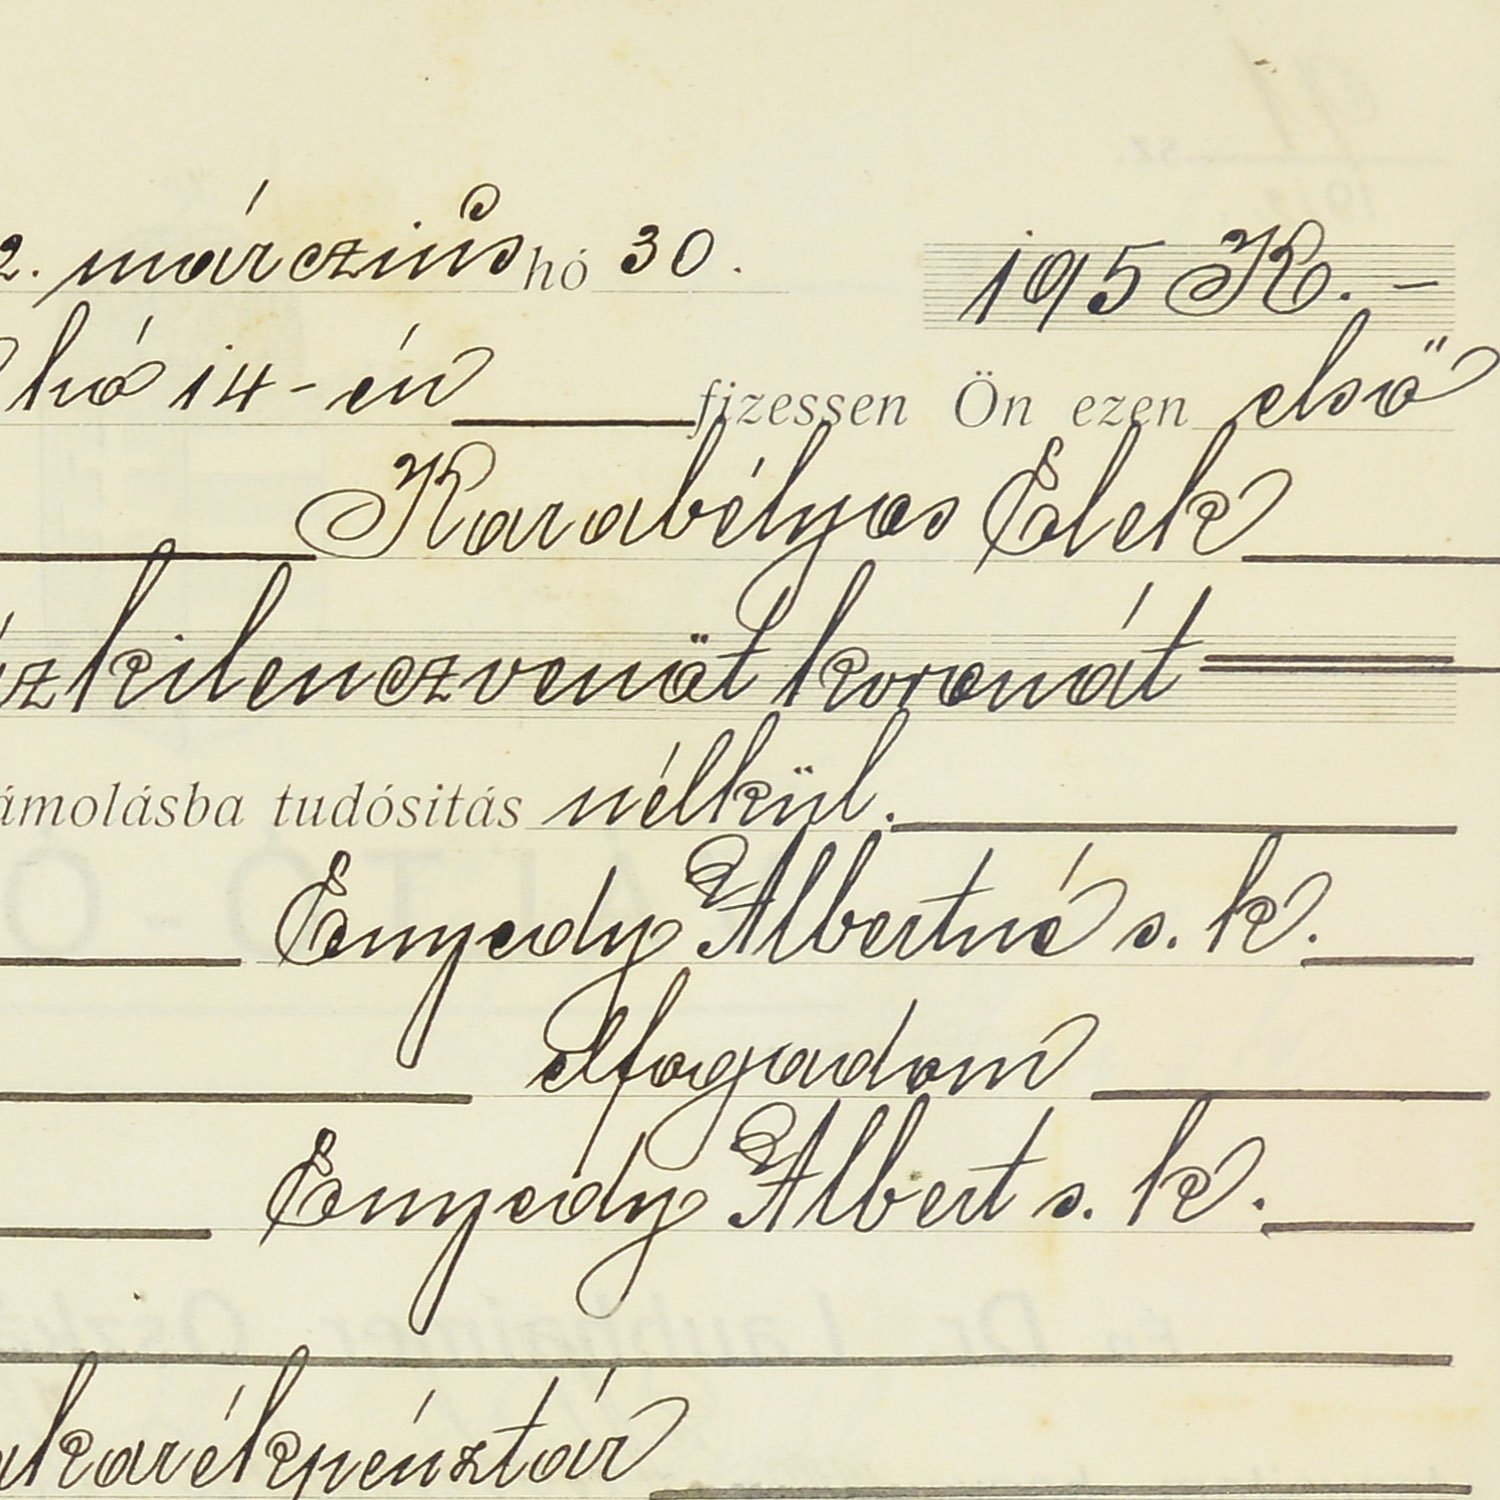 2. márczius hó 30. 195 K. –
hó 14-én fizessen Ön ezen első
Karabélyos Elek
zkilenczvenöt koronát
ámolásba tudósitás nélkül.
Enyedy Albertné s. k.
elfogadom
Enyedy Albert s. k.
akarékpénztár